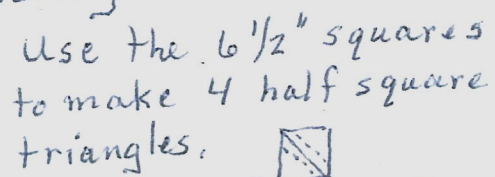 Use the 6 1/2" squares
to make 4 half square
triangles.